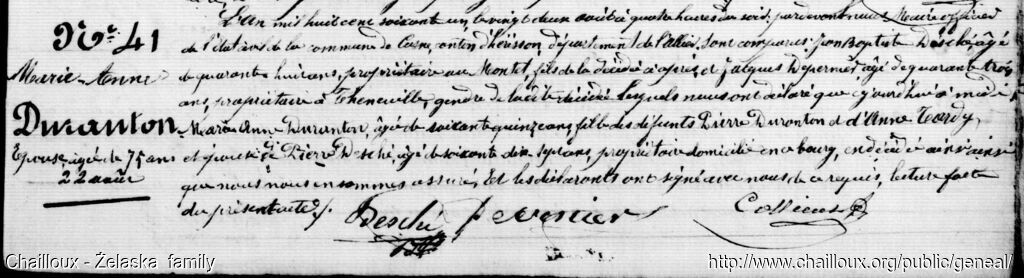 N.° 41
Marie-Anne
Duranton
Epouse, agée de 75 ans
22 août
L'an mil huit cent soixante un le vingt deux août à quatre heures du soir, pardevant nous Maire officier
de l'état civil de la commune de Cosne, canton d'hérisson, département de l'allier, sont comparus Jean Baptiste Desché, âgé
de quarante huit ans, propriétaire au Montet, fils de la décédée ci après, et Jacques Depernier âgé de quarante trois
ans, propriétaire à Theneuille, gendre de ladite décédée lesquels nous ont déclaré que cejourd'hui à midi
Marie Anne Duranton, âgée de soixante quinze ans, fille des défunts Pierre Duranton et d'Anne Tardy,
et épouse de Pierre Desché, âgé de soixante dix sept ans, propriétaire domicilié en ce bourg, est décédée ainsi
que nous nous en sommes assuré, Et les déclarants ont signé avec nous de ce requis, lecture faite
du présent acte./.
Desché
Pernier
Chailloux - Želaska family
http://www.chailloux.org/public/geneal/